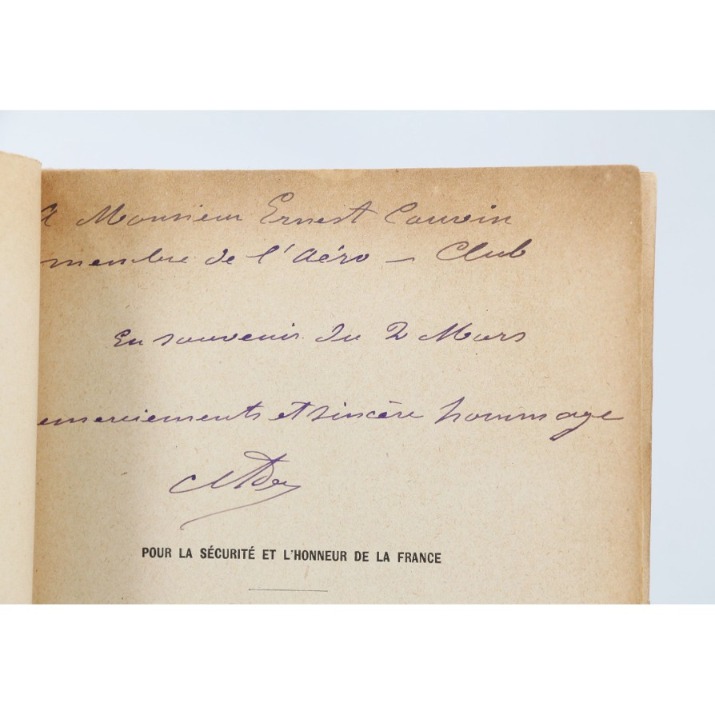 A Monsieur Ernest Cauvin
membre de l'Aéro - Club
En souvenir du 2 Mars
emerciements et sincère hommage
POUR LA SÉCURITÉ ET L'HONNEUR DE LA FRANCE